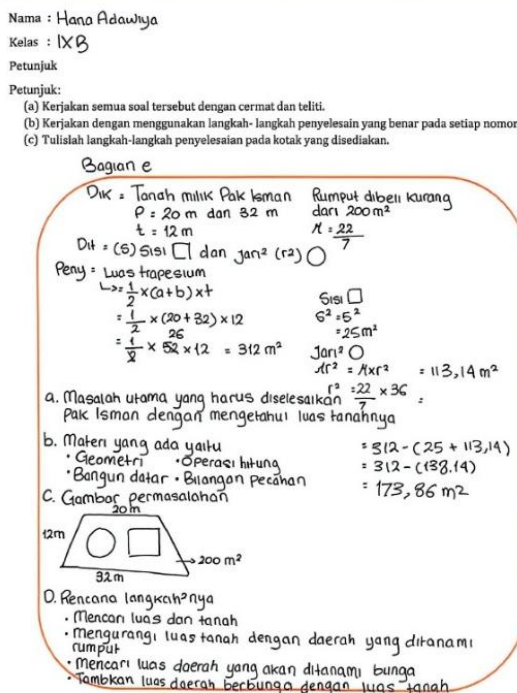 Nama : Hana Adawiya
Kelas : IXB
Petunjuk
Petunjuk:
(a) Kerjakan semua soal tersebut dengan cermat dan teliti.
(b) Kerjakan dengan menggunakan langkah- langkah penyelesain yang benar pada setiap nomor
(c) Tulislah langkah-langkah penyelesaian pada kotak yang disediakan.
Bagian e
Dik : Tanah milik Pak Isman
P = 20 m dan 32 m
t = 12 m
Rumput dibeli kurang
dari 200 m²
π = 22/7
Dit = (S) Sisi □ dan jari² (r2) ○
Peny = Luas trapesium
↳ = 1/2 × (a+b) × t
= 1/2 × (20+32) × 12
= 1/2 × 52 26 × 12 = 312 m²
Sisi □
S² = 5²
= 25 m²
Jari² ○
πr² = π×r² = 113,14 m²
r² = 22/7 × 36 =
a. Masalah utama yang harus diselesaikan
Pak Isman dengan mengetahui luas tanahnya
b. Materi yang ada yaitu
• Geometri • Operasi hitung
• Bangun datar • Bilangan pecahan
= 312 - (25 + 113,14)
= 312 - (138.14)
= 173,86 m2
C. Gambar permasalahan
20m
12m
200 m²
32m
D. Rencana langkah²nya
• Mencari luas dan tanah
• Mengurangi luas tanah dengan daerah yang ditanami
rumput
• Mencari luas daerah yang akan ditanami bunga
• Tambkan luas daerah berbunga dengan luas tanah